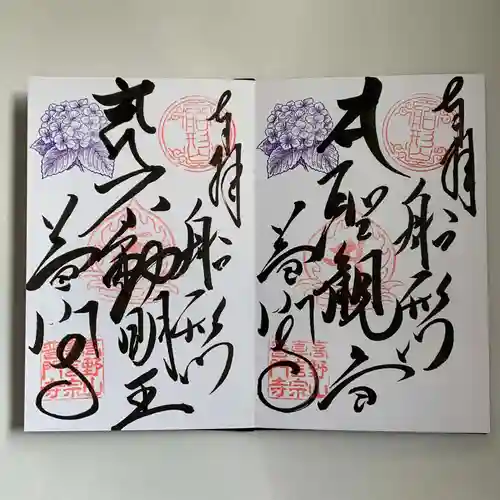 奉拝
船形山
聖観音
普門寺
高野山
真言宗
普門寺
奉拝
船形山
不動明王
普門寺
高野山
真言宗
普門寺